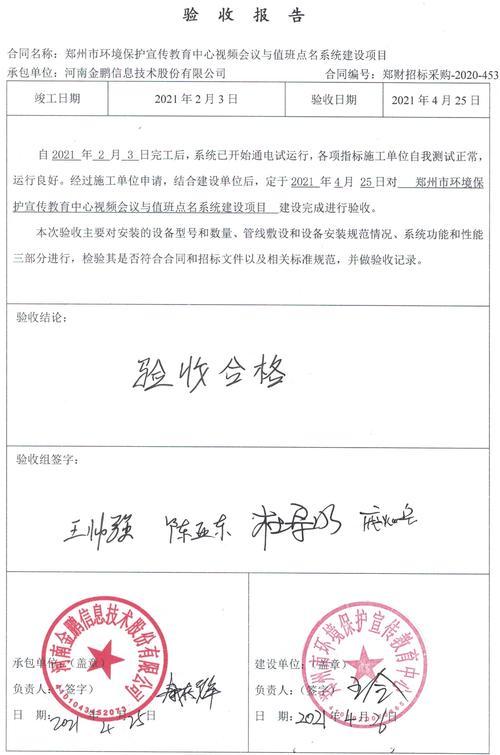 验收报告
合同名称：郑州市环境保护宣传教育中心视频会议与值班点名系统建设项目
承包单位：河南金鹏信息技术股份有限公司 合同编号：郑财招标采购-2020-453
竣工日期 2021 年 2 月 3 日 验收日期 2021 年 4 月 25 日
自 2021 年 2 月 3 日完工后，系统已开始通电试运行，各项指标施工单位自我测试正常，
运行良好。经过施工单位申请，结合建设单位后，定于 2021 年 4 月 25 日对 郑州市环境保
护宣传教育中心视频会议与值班点名系统建设项目 建设完成进行验收。
本次验收主要对安装的设备型号和数量、管线敷设和设备安装规范情况、系统功能和性能
三部分进行，检验其是否符合合同和招标文件以及相关标准规范，并做验收记录。
验收结论：
验收合格
验收组签字：
王帅强 陈亚东
河南金鹏信息技术股份有限公司
4101043452073
承包单位：（盖章）
负责人：（签字）
日 期：2021 年 4 月 25 日
郑州市环境保护宣传教育中心
建设单位：（盖章）
负责人：（签字）
日 期：2021 年 4 月 26 日